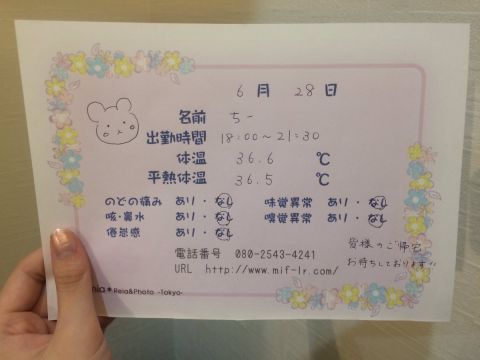 6 月 28 日
名前 ちー
出勤時間 18:00～21:30
体温 36.6 ℃
平熱体温 36.5 ℃
のどの痛み あり・なし 味覚異常 あり・なし
咳・鼻水 あり・なし 嗅覚異常 あり・なし
倦怠感 あり・なし
電話番号 080-2543-4241
URL http://www.mif-lr.com/
皆様のご帰宅
お待ちしております
Rela&Photo -Tokyo-